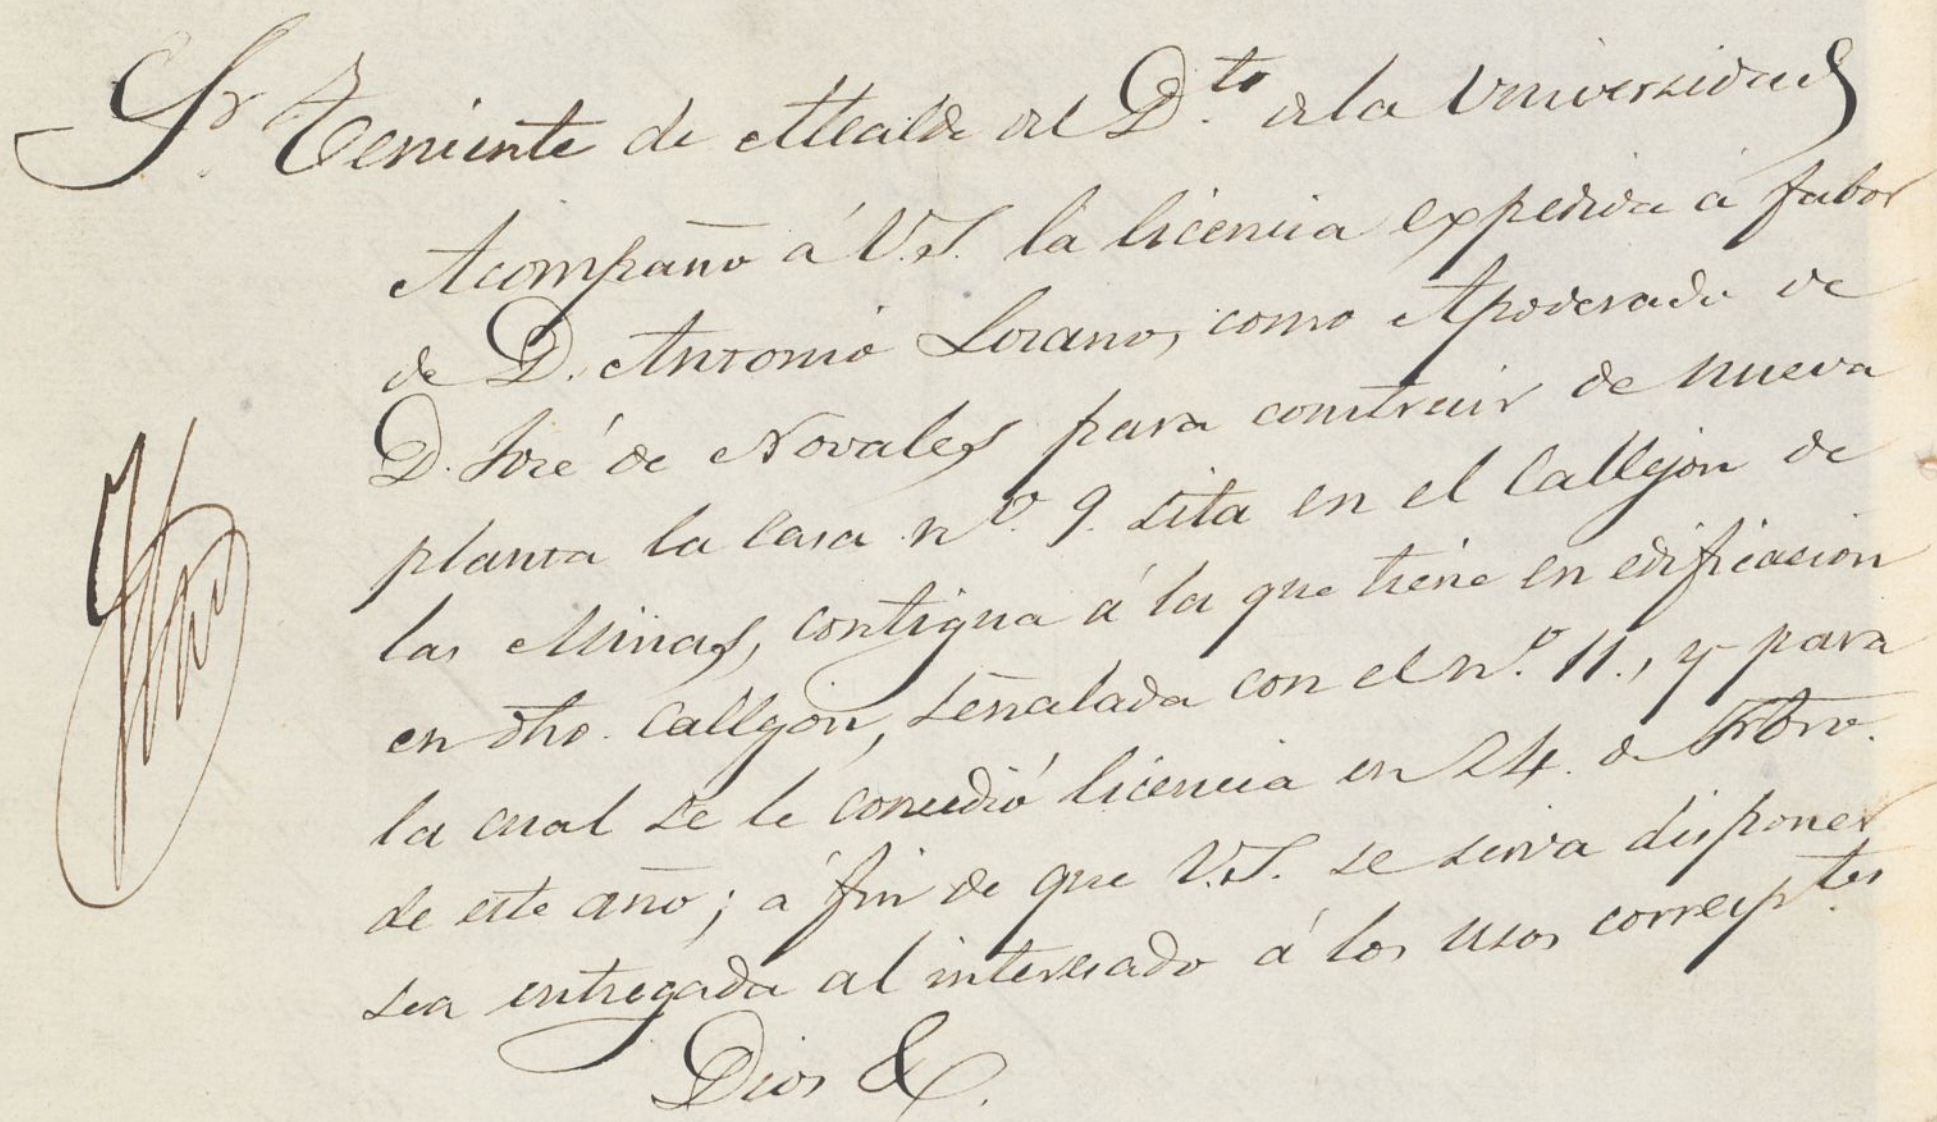 Sr. Teniente de Alcalde del D.to de la Universidad
Acompaño á V.S. la licencia expedida á fabor
de D. Antonio Lozano, como Apoderado de
D. José de Novales para construir de nueva
planta la Casa nº. 9. sita en el Callejon de
las Minas, contigua á la que tiene en edificacion
en dho. Callejon, señalada con el nº. 11., y para
la cual se le concedió licencia en 24. de Frbro.
de este año; á fin de que V.S. se sirva disponer
sea entregada al interesado á los usos corresp.tes
Dios &.